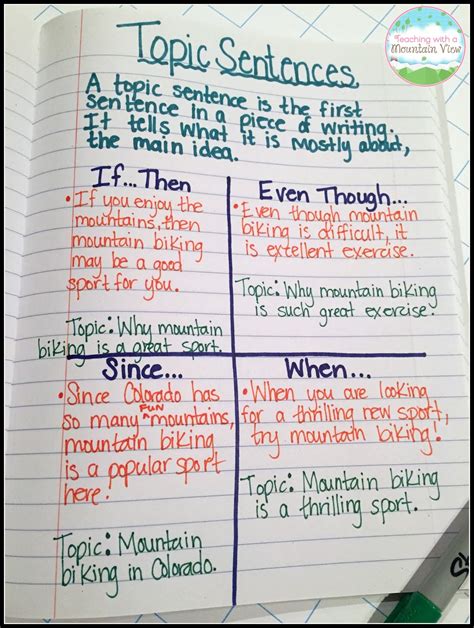 Teaching with a
Mountain View
Topic Sentences
A topic sentence is the first
sentence in a piece of writing.
It tells what it is mostly about,
the main idea.
If...Then
• If you enjoy the
mountains, then
mountain biking
may be a good
sport for you.
Topic: Why mountain
biking is a great sport.
Even Though...
• Even though mountain
biking is difficult, it
is excellent exercise.
Topic: Why mountain biking
is such great exercise!
Since...
• Since Colorado has
so many FUN mountains,
mountain biking
is a popular sport
here!
Topic: Mountain
biking in Colorado.
When...
• When you are looking
for a thrilling new sport,
try mountain biking!
Topic: Mountain biking
is a thrilling sport.
S